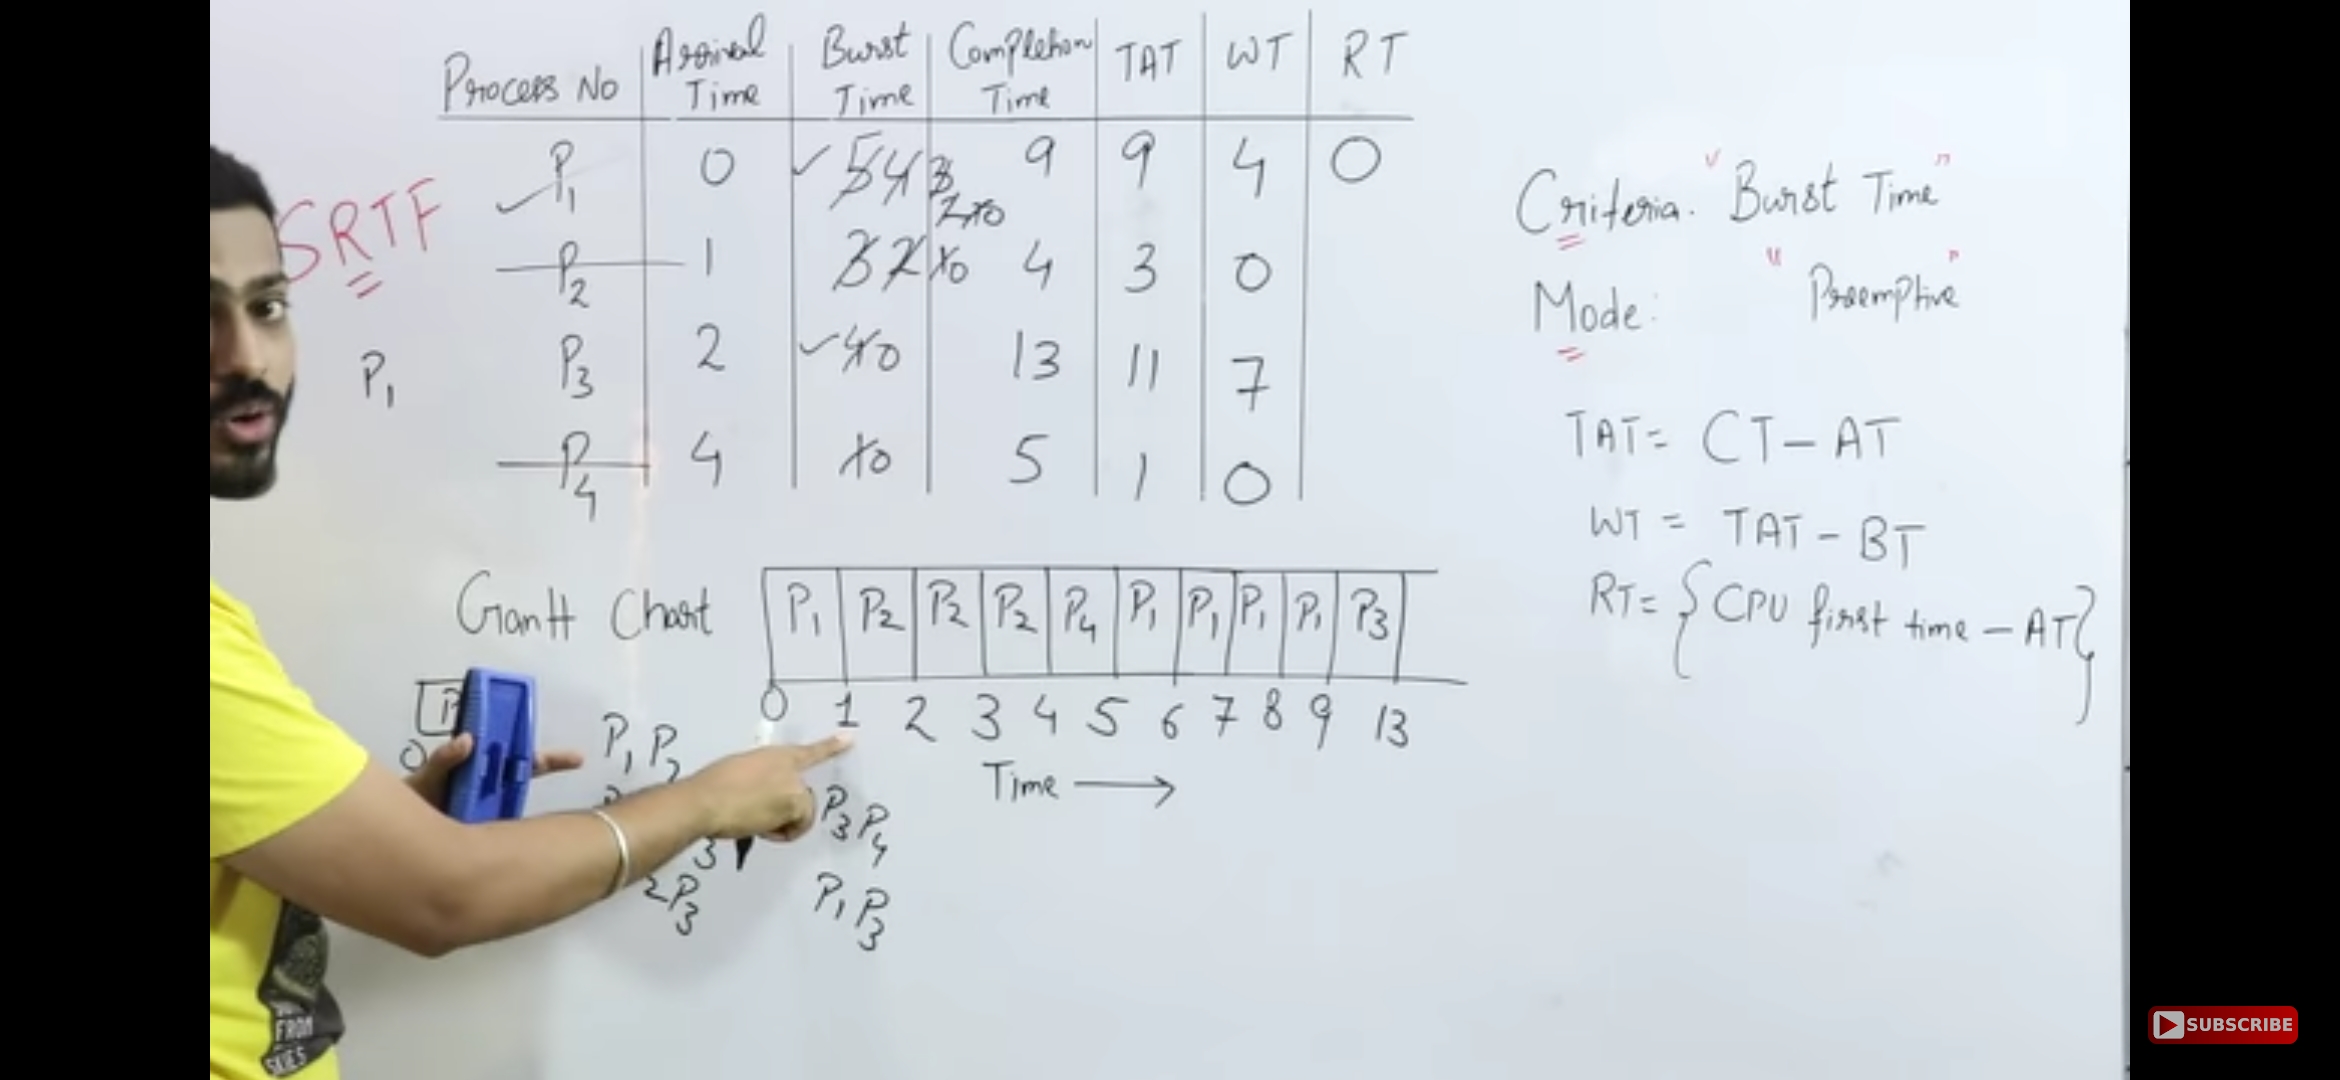 Process No Arrival Time Burst Time Completion Time TAT WT RT
P1 0 5 4 3 2 1 0 9 9 4 0
P2 1 3 2 1 0 4 3 0
P3 2 4 0 13 11 7
P4 4 1 0 5 1 0
SRTF
P1
Criteria. "Burst Time"
Mode: "Preemptive"
TAT = CT - AT
WT = TAT - BT
RT = {CPU first time - AT}
Gantt Chart P1 P2 P2 P2 P4 P1 P1 P1 P1 P3
0 1 2 3 4 5 6 7 8 9 13
Time →
0
P1 P2
P3 P4
3
2P3
P1 P3
FROM
SKIES
SUBSCRIBE